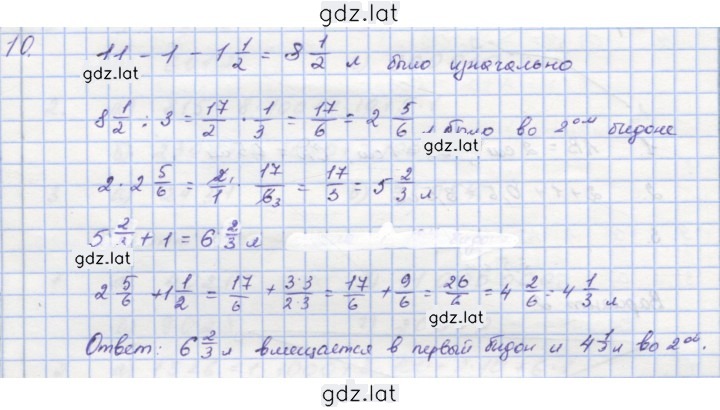 gdz.lat
10. 11 - 1 - 1 1/2 = 8 1/2 л было изначально
gdz.lat
8 1/2 : 3 = 17/2 · 1/3 = 17/6 = 2 5/6 л было во 2ом бидоне
gdz.lat
2 · 2 5/6 = 2/1 · 17/6 = 17/3 = 5 2/3 л
5 2/3 + 1 = 6 2/3 л
gdz.lat
2 5/6 + 1 1/2 = 17/6 + 3·3/2·3 = 17/6 + 9/6 = 26/6 = 4 2/6 = 4 1/3 л
gdz.lat
Ответ: 6 2/3 л вмещается в первый бидон и 4 1/3 л во 2ой.
gdz.lat